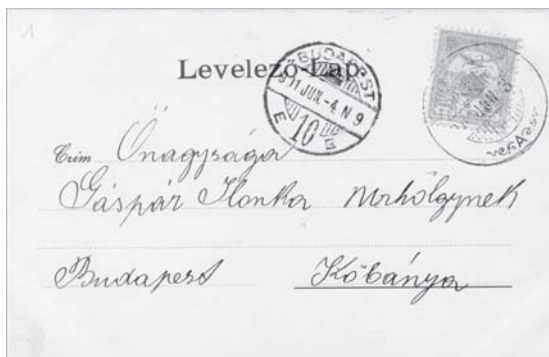 1
Levelező-Lap.
BUDAPEST
911 JUN.-4. N 9
E 10
Czim Őnagysága
Gáspár Ilonka Urhölgynek
Budapest Kőbánya